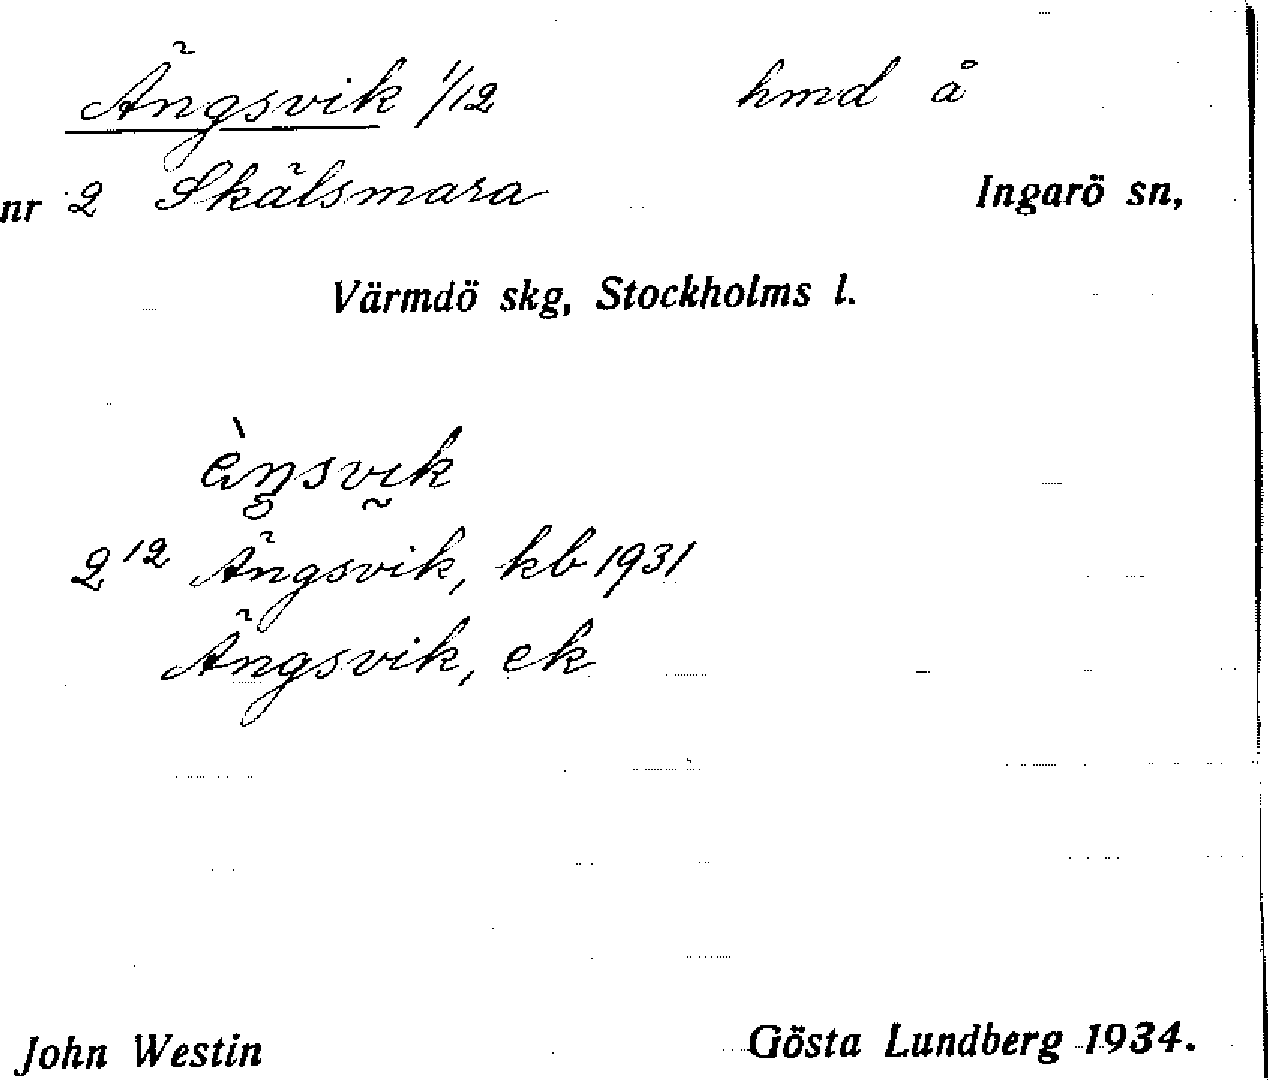 Ängsvik 1/12 hmd å
nr 2 Skälsmara Ingarö sn,
Värmdö skg, Stockholms l.
èŋsvik
2¹² Ängsvik, kb 1931
Ängsvik, ek
John Westin Gösta Lundberg 1934.